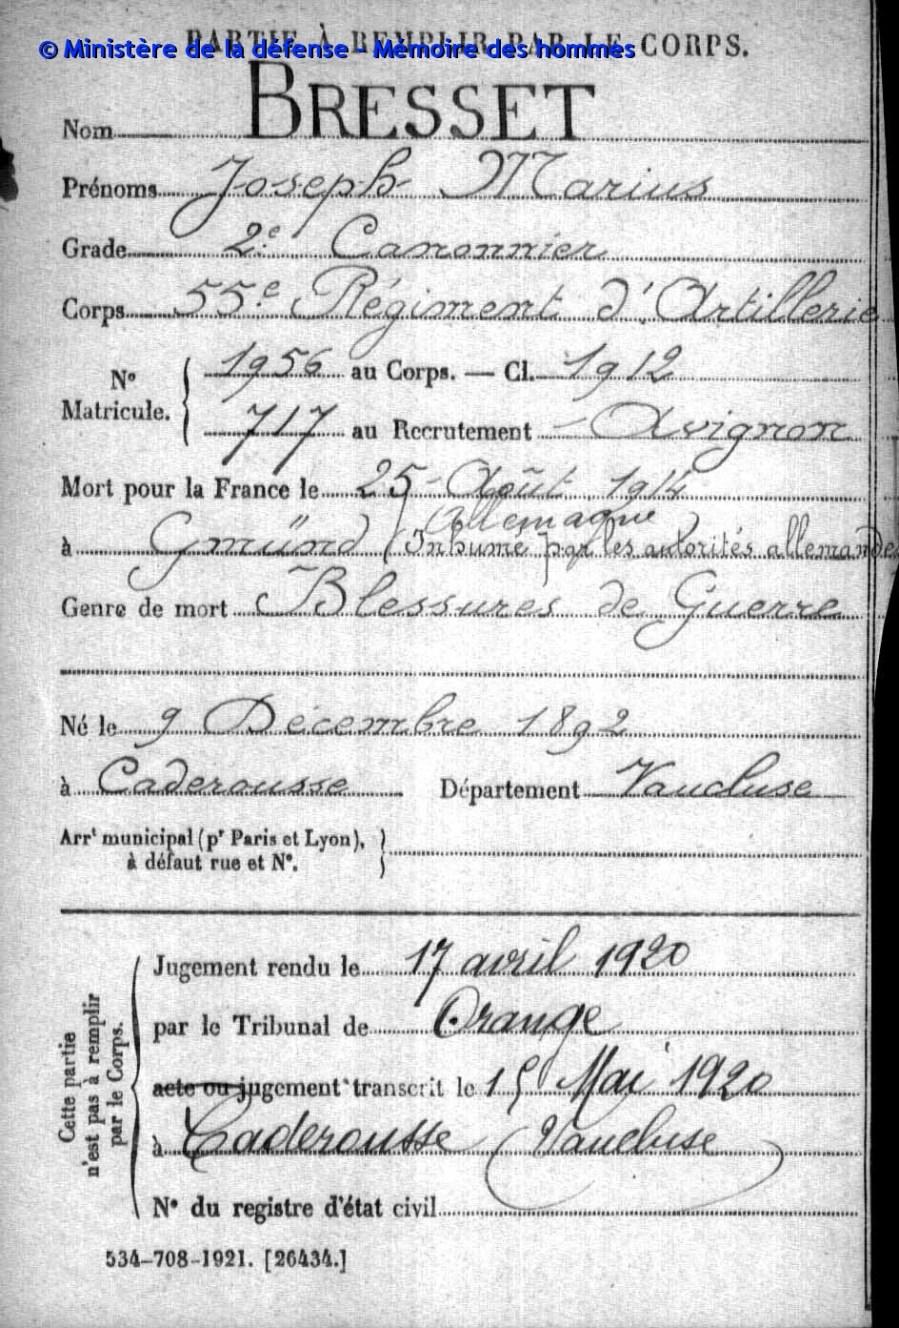 PARTIE À REMPLIR PAR LE CORPS.
© Ministère de la défense - Mémoire des hommes
Nom BRESSET
Prénoms Joseph Marius
Grade 2e Canonnier
Corps 55e Régiment d'Artillerie
No Matricule. { 1956 au Corps. — Cl. 1912
717 au Recrutement - Avignon
Mort pour la France le 25 - Août 1914
Allemagne
à Gmünd (Inhumé par les autorités allemandes
Genre de mort Blessures de Guerre
Né le 9 Décembre 1892
à Caderousse Département Vaucluse
Arrt municipal (pr Paris et Lyon), }
à défaut rue et No.
Cette partie
n'est pas à remplir
par le Corps.
Jugement rendu le 17 avril 1920
par le Tribunal de Orange
acte ou jugement transcrit le 15 Mai 1920
à Caderousse (Vaucluse)
No du registre d'état civil
534-708-1921. [26434.]